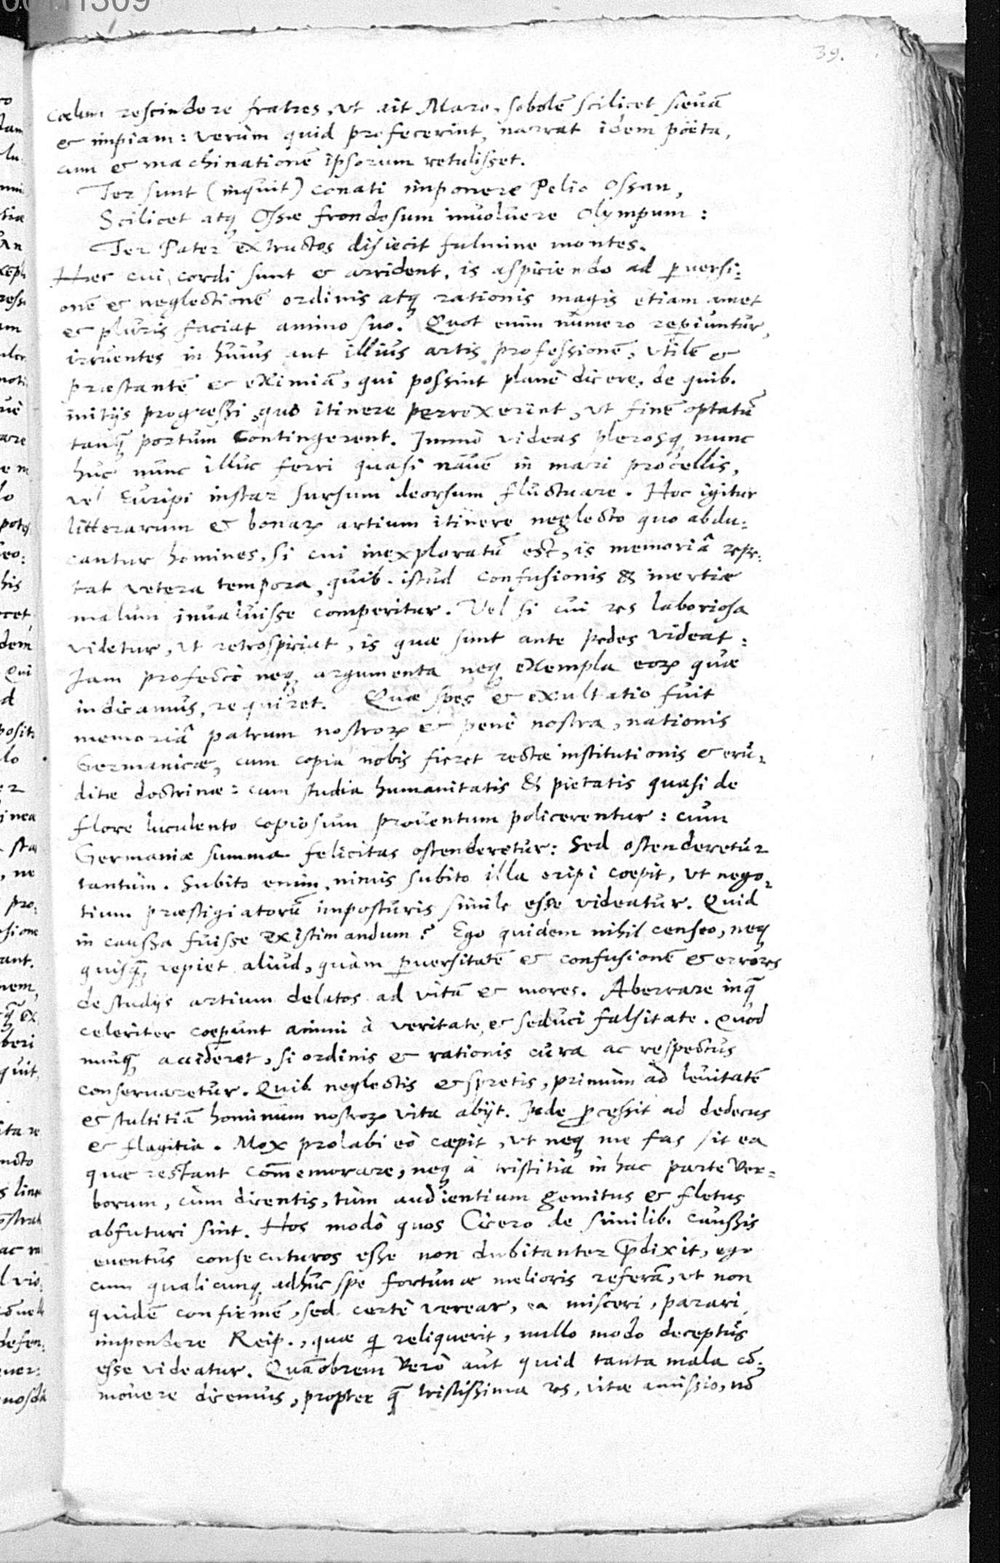 39.
coelum rescindere fratres, ut ait Maro, sobolē scilicet sævā
et impiam: verùm quid profecerint, narrat idem pöeta,
cum et machinationē ipsorum retulisset.
Ter sunt (inquit) conati imponere Pelio Ossan,
Scilicet atq Ossæ frondosum involuere Olympum:
Ter Pater extructos disiecit fulmine montes.
Hec cui cordi sunt et arrident, is aspiciendo ad pversi:
onē et neglectionē ordinis atq rationis magis etiam amet
et pluris faciat animo suo. Quot enim numero repiuntur,
irruentes in huius aut illius artis professionē, utilē et
præstantē et eximiā, qui possint planè dicere, de quib.
initijs progressi, quo itinere perrexerint, ut finē optatū
tanq portum contingerent. Immò videas plerosq nunc
huc nunc illuc ferri quasi nauē in mari procellis,
vel Euripi instar sursum deorsum fluctuare. Hoc igitur
litterarum et bonarꝫ artium itinere neglecto quo abdu:
cantur homines, si cui inexploratū est, is memoriâ repe:
tat vetera tempora, quib. istud confusionis & inertiæ
malum invaluisse comperitur. Vel si cui res laboriosa
videtur, ut retrospiciat, is quæ sunt ante pedes videat:
Jam profectò neq argumenta neq exempla eorꝫ quæ
indicamus, requiret. Quæ spes et exultatio fuit
memoriâ patrum nostrorꝫ et penè nostra, nationis
Germanicæ, cum copia nobis fieret rectæ institutionis et eru:
ditæ doctrinæ: cum studia humanitatis & pietatis quasi de
flore luculento copiosum proventum policerentur: cum
Germaniæ summa felicitas ostenderetur: Sed ostenderetur
tantum. Subito enim, nimis subito illa eripi coepit, ut nego:
tium præstigiatorū imposturis simile esse videatur. Quid
in caussa fuisse existimandum? Ego quidem nihil censeo, neq
quisq repiet aliud, quàm pversitatē et confusionē et errores
de studijs artium delatos ad vitā et mores. Aberrare inq
celeriter coeperunt animi à veritate, et seduci falsitate. Quod
nunq accideret, si ordinis et rationis cura ac respectus
conservaretur. Quib. neglectis et spretis, primùm ad levitatē
et stultitiā hominum nostrorꝫ vita abijt. Inde pcessit ad dedecus
et flagitia. Mox prolabi eò cæpit, ut neq me fas sit ea
quæ restant com̄emorare, neq à tristitia in hac parte ver:
borum, cùm dicentis, tùm audientium gemitus et fletus
abfuturi sint. Hos modò quos Cicero de similib. caussis
eventus consecuturos esse non dubitanter p̄dixit, ego
cum qualicunq adhuc spe fortunæ melioris referā, ut non
quidē confirmē, sed certè verear, ea misceri, parari,
impendere Reip., quæ q reliquerit, nullo modo deceptus
esse videatur. Quāobrem verò aut quid tanta mala cō:
movere dicemus, propter q tristissima res, vitæ amissio, nō